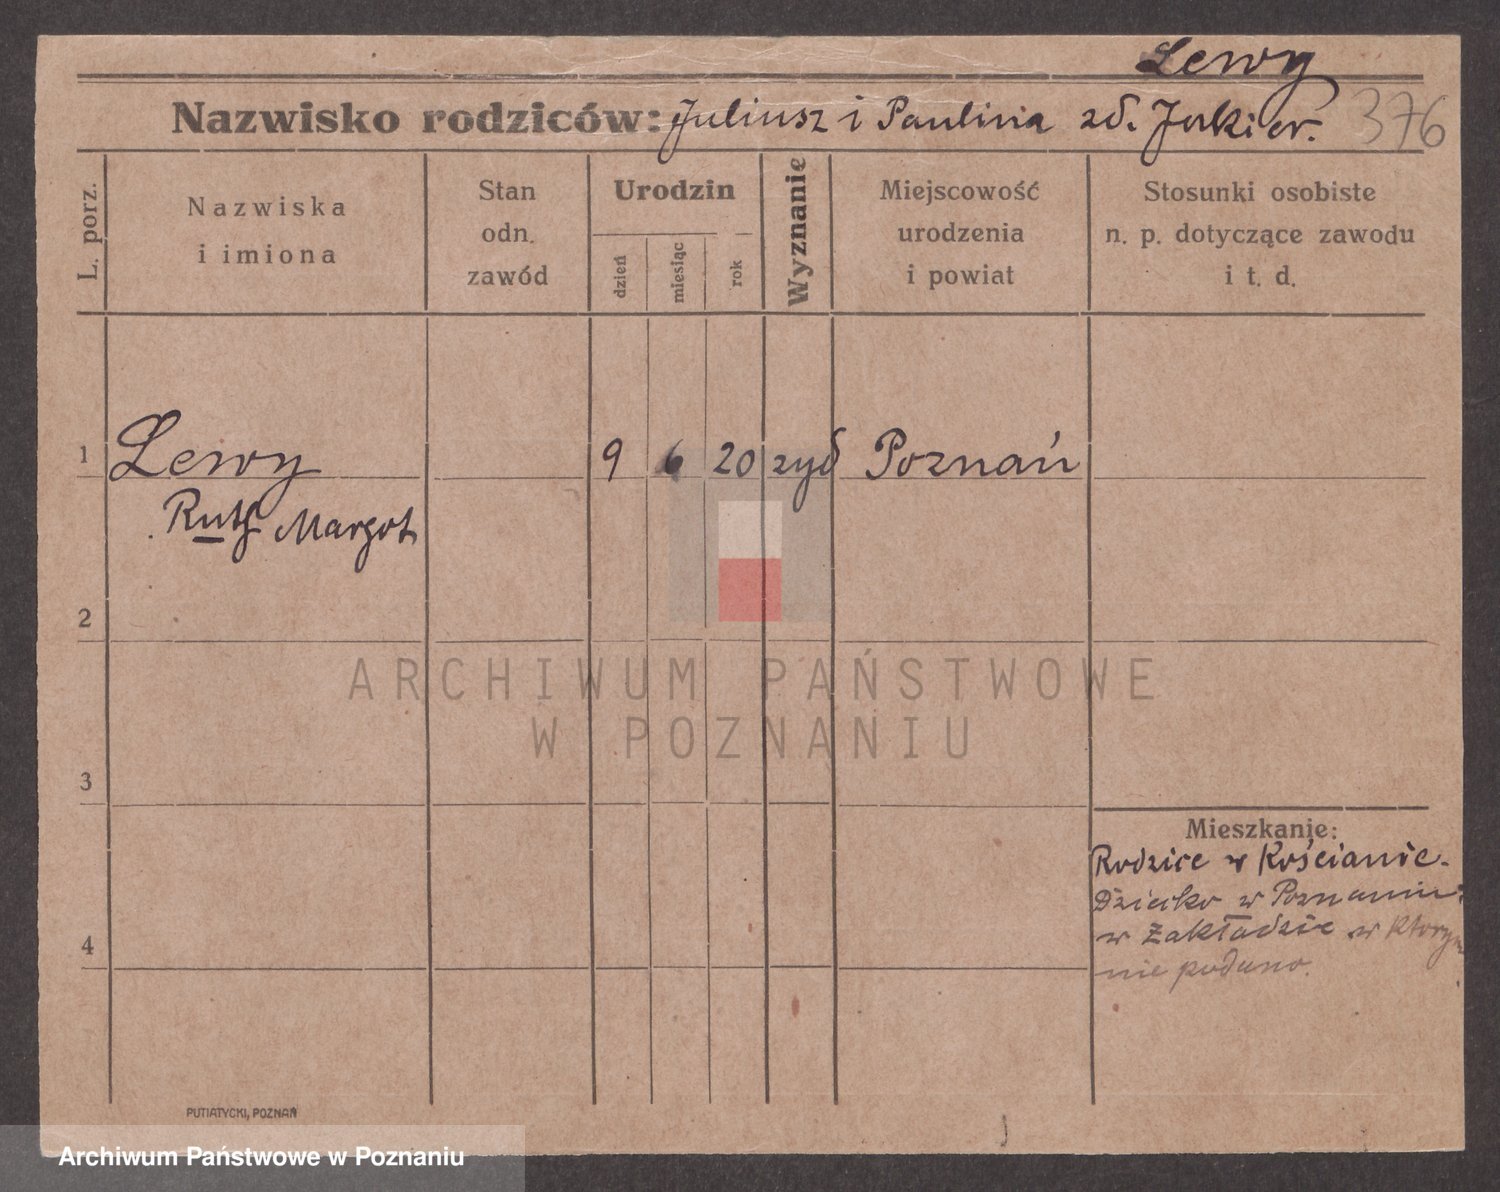 Lewy
Nazwisko rodziców: Juliusz i Paulina zd. 376
L. porz.
Nazwiska
i imiona
Stan
odn.
zawód
Urodzin
dzień
miesiąc
rok
Wyznanie
Miejscowość
urodzenia
i powiat
Stosunki osobiste
n. p. dotyczące zawodu
i t. d.
1 Lewy 9 6 20 żyd Poznań
Ruth Margot
2
ARCHIWUM PAŃSTWOWE
W POZNANIU
3
Mieszkanie:
Rodzice w Kościanie.
Dziecko w Poznaniu
w Zakładzie w którym
nie podano.
4
PUTIATYCKI, POZNAŃ
Archiwum Państwowe w Poznaniu